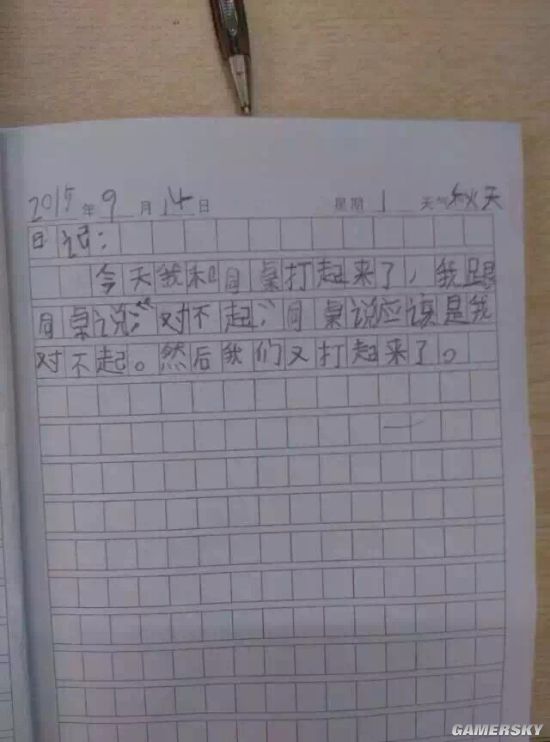 2015年9月14日 星期1 天气秋天
日记:
今天我和同桌打起来了,我跟
同桌说:“对不起”同桌说应该是我
对不起。然后我们又打起来了。
GAMERSKY